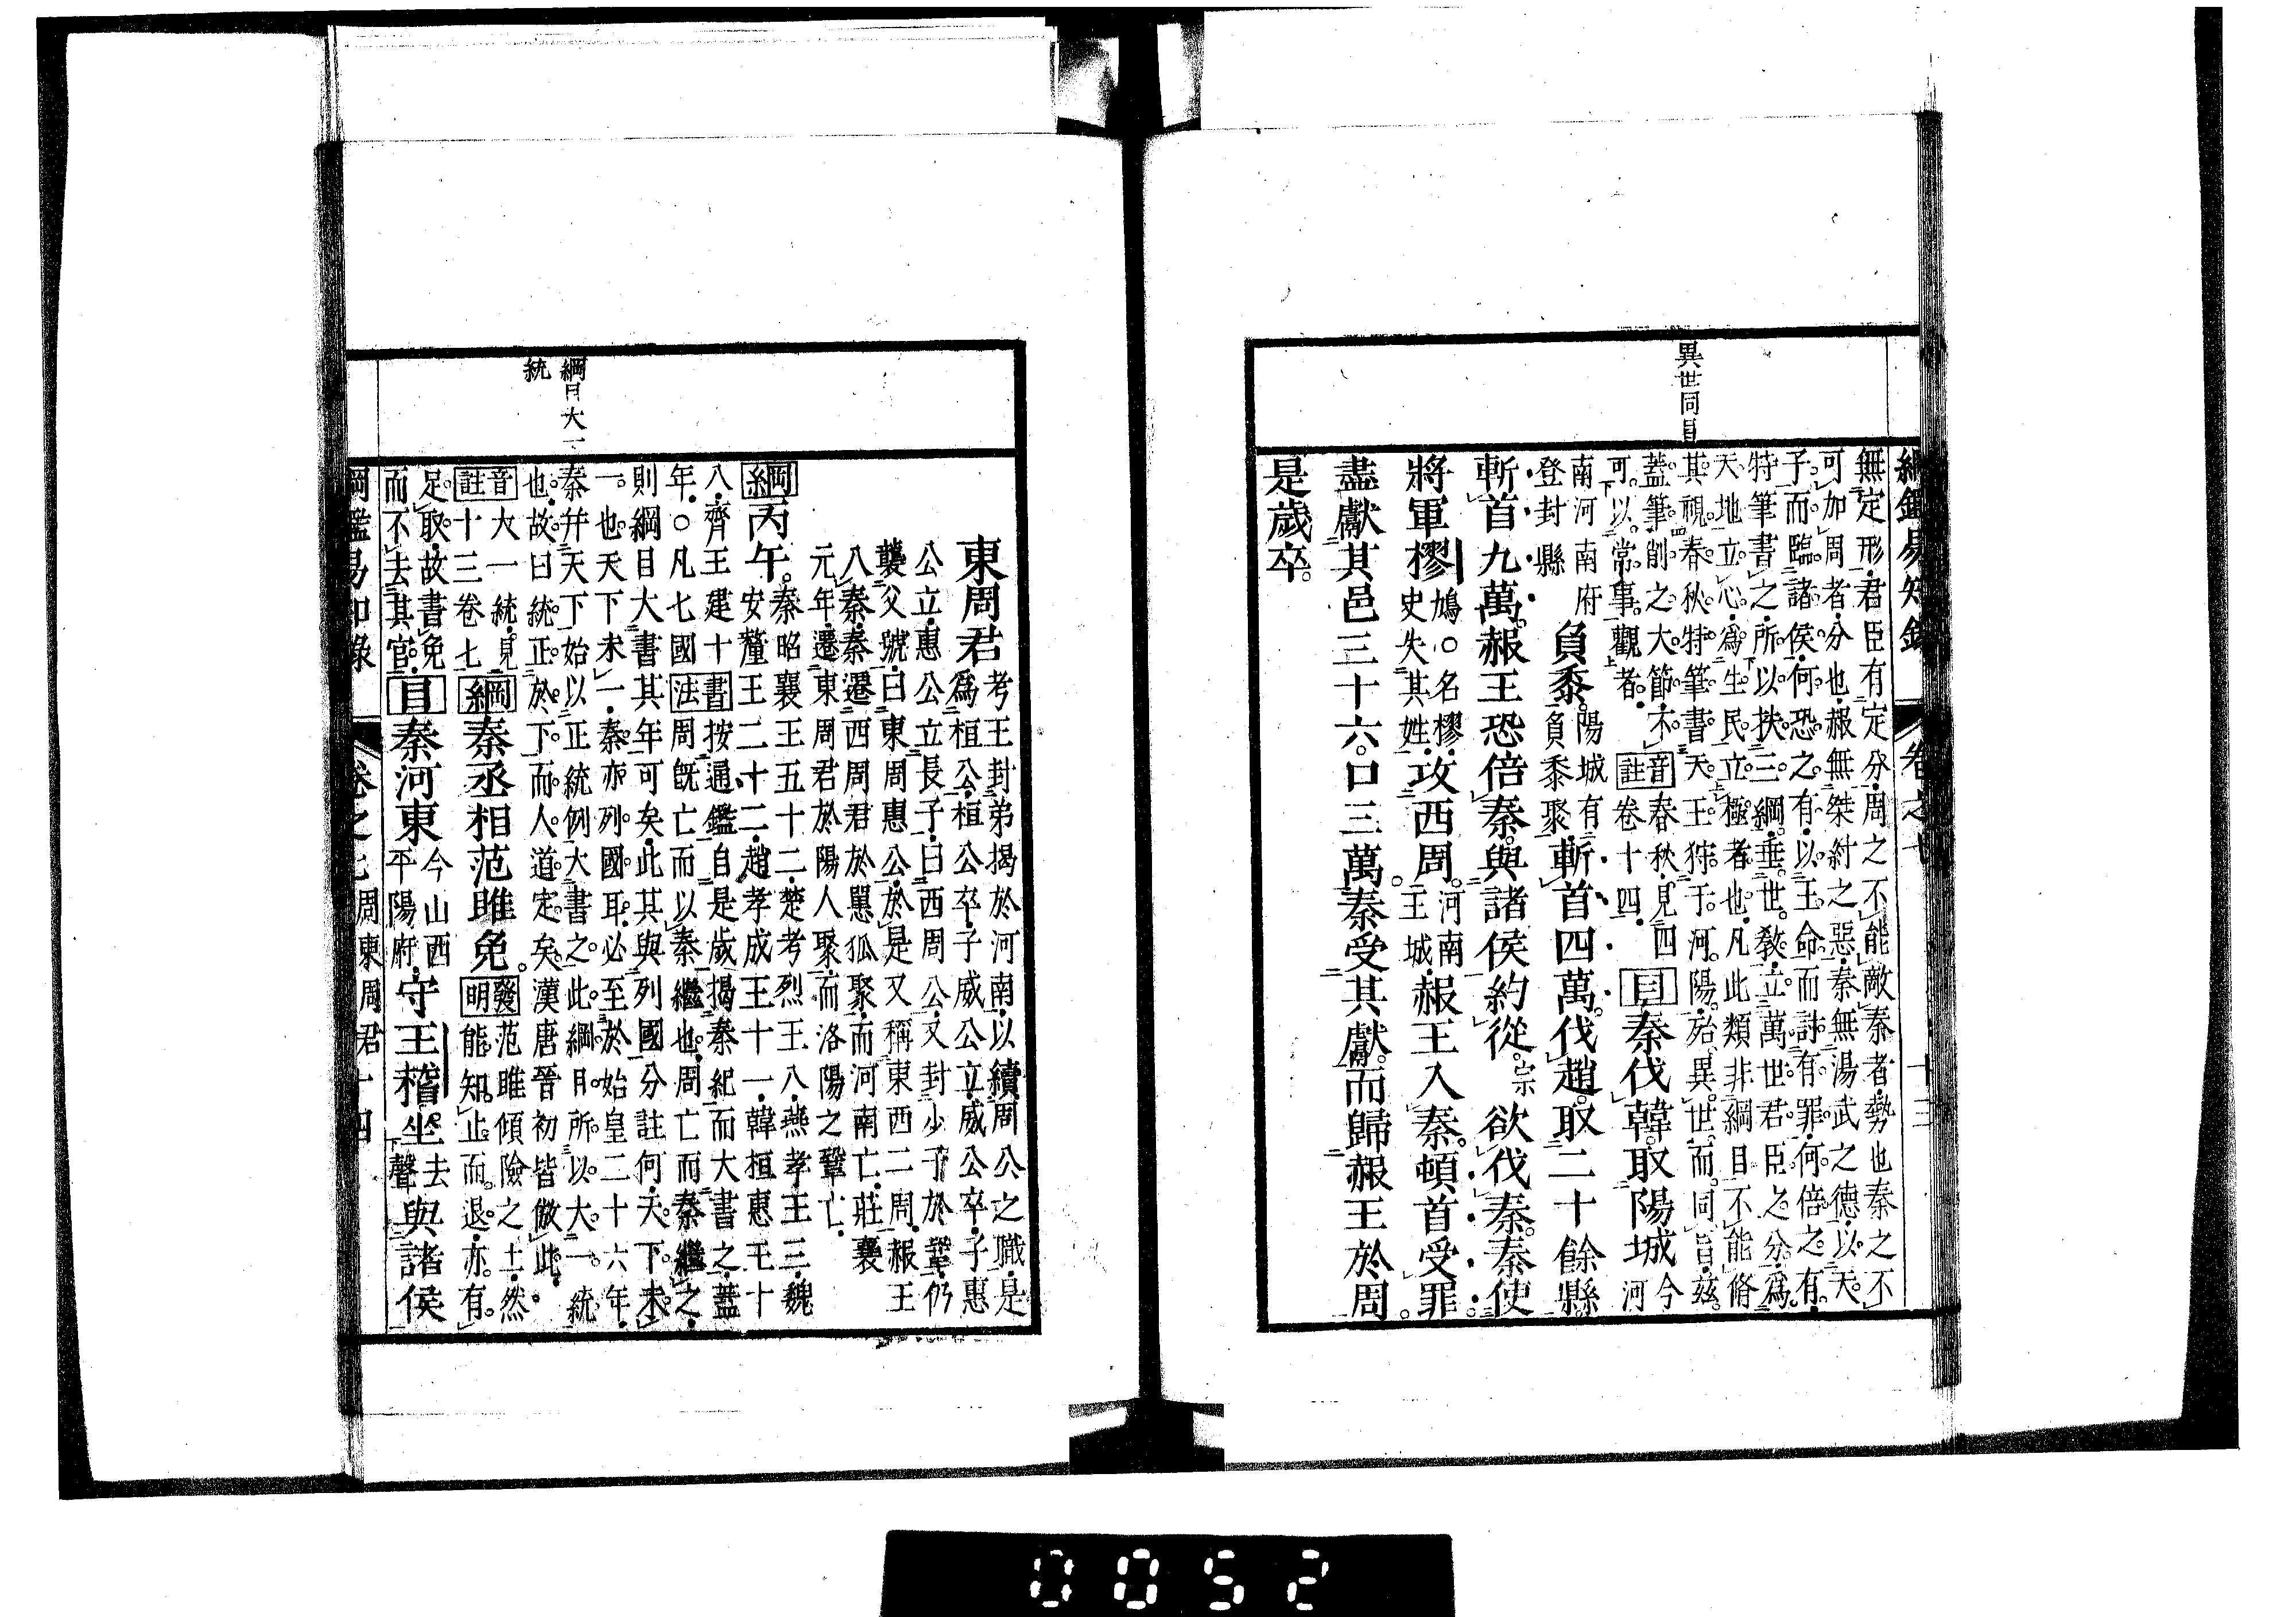 綱鑑易知錄 卷之七 十三
異世同旨
無定形君臣有定分周之不能敵秦者勢也秦之不
可加周者分也赧無桀紂之惡秦無湯武之德以天
子而臨諸侯何恐之有以王命而討有罪何倍之有
特筆書之所以扶三綱垂世教立萬世君臣之分爲
天地立心爲生民立極者也凡此類非綱目不能脩
其視春秋特筆書天王狩于河陽殆異世而同旨茲
蓋筆削之大節不可以常事觀者音註春秋見四卷十四目秦伐韓取陽城今河
南河南府登封縣負黍陽城有負黍聚斬首四萬伐趙取二十餘縣
斬首九萬赧王恐倍秦與諸侯約從宗欲伐秦秦使
將軍摎鳩○名摎史失其姓攻西周河南王城赧王入秦頓首受罪
盡獻其邑三十六口三萬秦受其獻而歸赧王於周
是歲卒
東周君考王封弟揭於河南以續周公之職是
爲桓公桓公卒子威公立威公卒子惠
公立惠公立長子曰西周公又封少子於鞏仍
襲父號曰東周惠公於是又稱東西二周赧王
八秦秦遷西周君於𢠸狐聚而河南亡莊襄
元年遷東周君於陽人聚而洛陽之鞏亡
綱丙午秦昭襄王五十二楚考烈王八燕孝王三魏
安釐王二十二趙孝成王十一韓桓惠王十
八齊王建十年○凡七國書法按通鑑自是歲揭秦紀而大書之蓋
周旣亡而以秦繼也周亡而秦繼之
則綱目大書其年可矣此其與列國分註何天下未
一也天下未一秦亦列國耳必至於始皇二十六年
秦幷天下始以正統例大書之此綱目所以大一統
也故曰統正於下而人道定矣漢唐晉初皆倣此
綱目大一統
音註大一統見十三卷七綱秦丞相范雎免發明范雎傾險之士然能知止而退亦有
足取故書免而不去其官目秦河東今山西平陽府守王稽坐去聲與諸侯
綱鑑易知錄 卷之七 周東周君 十四
0052